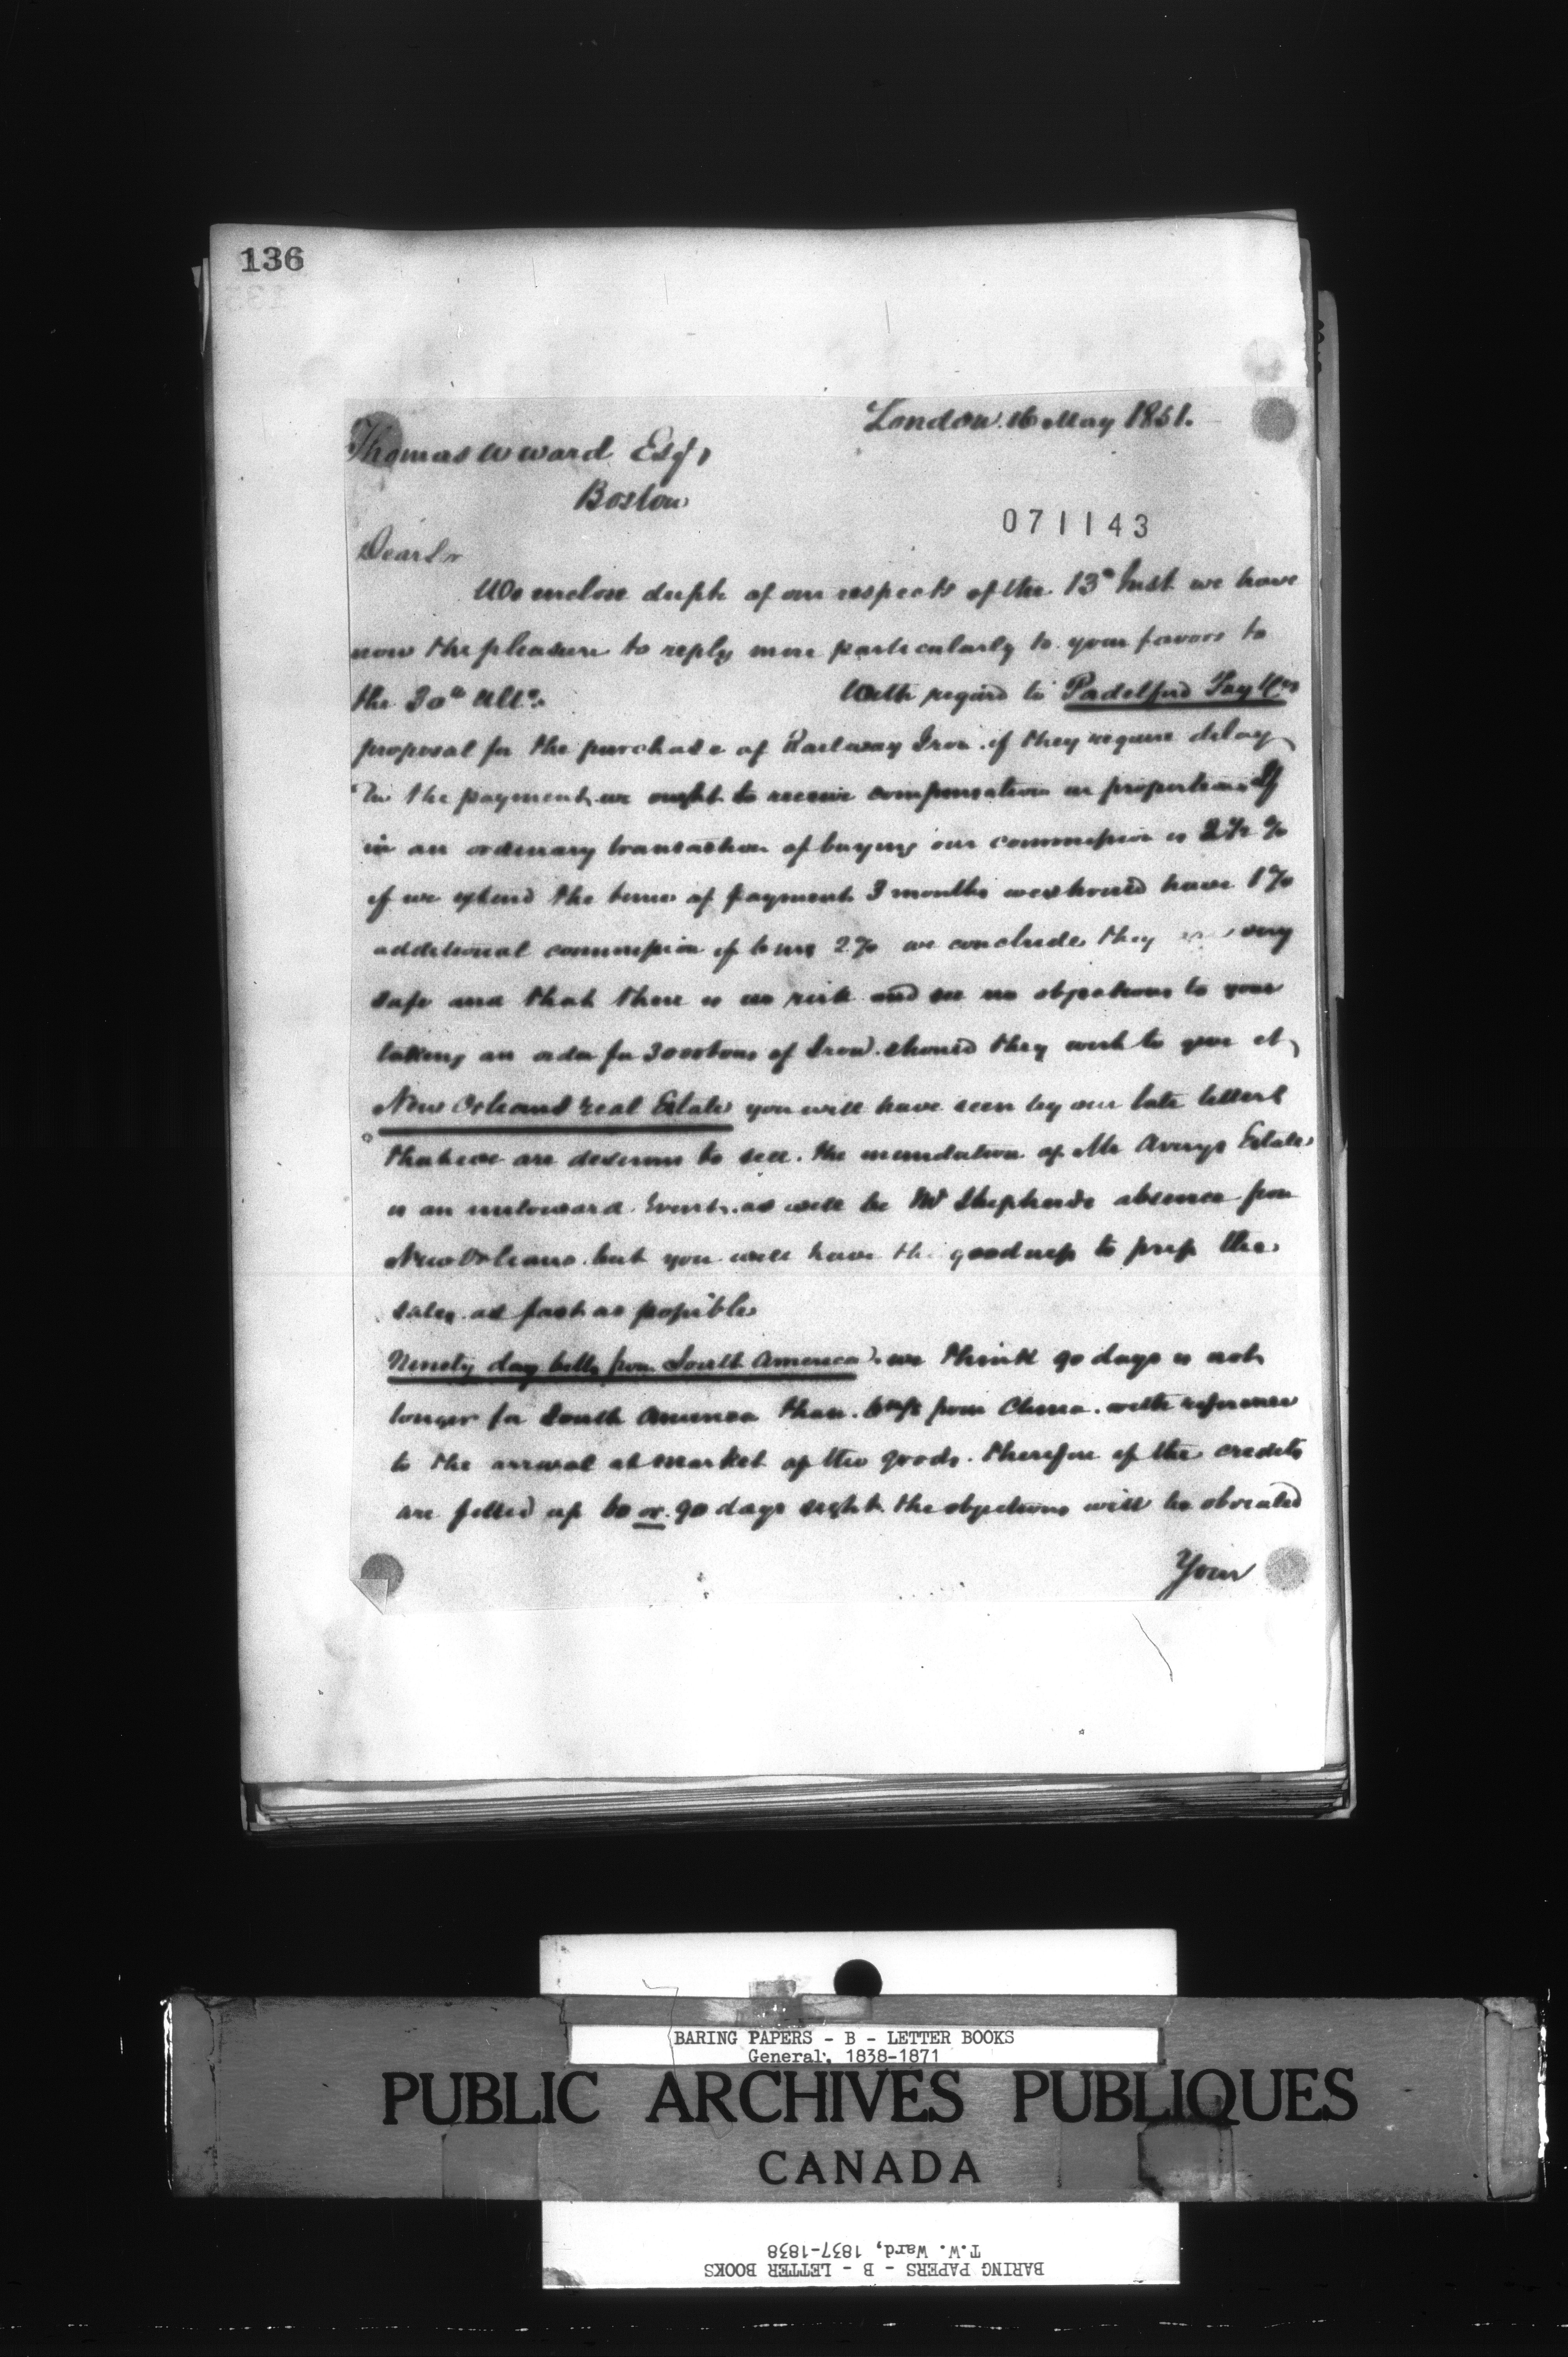 136
London 16 May 1851.
Thomas W Ward Esqr
Boston
071143
Dear Sir
We enclose dupte of our respects of the 13th Inst we have
now the pleasure to reply more particularly to your favors to
the 30th Ulto.
With regard to Padelford Fay & Co's
proposal for the purchase of Railway Iron. if they require delay
in the payment, we ought to receive compensation in proportion. If
in an ordinary transaction of buying our commission is 2½ %
if we extend the time of payment 3 months we should have 1%
additional commission if 6 mos 2% we conclude they very
safe and that there is no risk and see no objections to your
taking an order for 3000 tons of Iron should they wish to give it,
New Orleans real Estate you will have seen by our late letters
that we are desirous to sell. the inundation of Mr Averys Estate
is an untoward Event, as will be Mr Shepherds absence from
New Orleans. but you will have the goodness to press the
sales as fast as possible
Ninety day bills from South America. we think 90 days is not
longer for South America than from China. with reference
to the arrival at market of the goods. therefore if the credits
are filled up 60 or 90 days sight the objections will be obviated
Your
BARING PAPERS - B - LETTER BOOKS
General, 1838-1871
PUBLIC ARCHIVES PUBLIQUES
CANADA
T.W. Ward, 1837-1838
BARING PAPERS - B - LETTER BOOKS